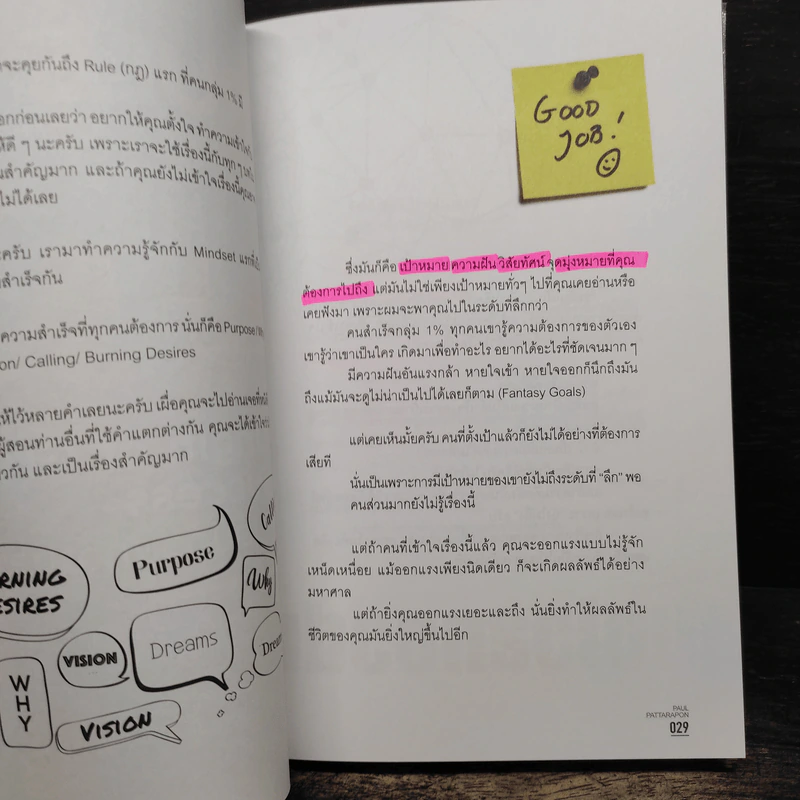 จะคุยกันถึง Rule (กฎ) แรก ที่คนกลุ่ม 1% มี
อกก่อนเลยว่า อยากให้คุณตั้งใจ ทำความเข้าใจ
ให้ดี ๆ นะครับ เพราะเราจะใช้เรื่องนี้กับทุก ๆ
นสำคัญมาก และถ้าคุณยังไม่เข้าใจเรื่องนี้คุณ
ไม่ได้เลย
ะครับ เรามาทำความรู้จักกับ Mindset แรก
สำเร็จกัน
ความสำเร็จที่ทุกคนต้องการ นั่นก็คือ Purpose/
on/ Calling/ Burning Desires
ให้ไว้หลายคำเลยนะครับ เผื่อคุณจะไปอ่านเจอที่
ผู้สอนท่านอื่นที่ใช้คำแตกต่างกัน คุณจะได้เข้าใจ
วกัน และเป็นเรื่องสำคัญมาก
RNING
ESIRES
Purpose
Calli
Why
VISION
Dreams
Dream
WHY
VISION
GOOD
JOB!
ซึ่งมันก็คือ เป้าหมาย ความฝัน วิสัยทัศน์ จุดมุ่งหมายที่คุณ
ต้องการไปถึง แต่มันไม่ใช่เพียงเป้าหมายทั่วๆ ไปที่คุณเคยอ่านหรือ
เคยฟังมา เพราะผมจะพาคุณไปในระดับที่ลึกกว่า
คนสำเร็จกลุ่ม 1% ทุกคนเขารู้ความต้องการของตัวเอง
เขารู้ว่าเขาเป็นใคร เกิดมาเพื่อทำอะไร อยากได้อะไรที่ชัดเจนมาก ๆ
มีความฝันอันแรงกล้า หายใจเข้า หายใจออกก็นึกถึงมัน
ถึงแม้มันจะดูไม่น่าเป็นไปได้เลยก็ตาม (Fantasy Goals)
แต่เคยเห็นมั้ยครับ คนที่ตั้งเป้าแล้วก็ยังไม่ได้อย่างที่ต้องการ
เสียที
นั่นเป็นเพราะการมีเป้าหมายของเขายังไม่ถึงระดับที่ "ลึก" พอ
คนส่วนมากยังไม่รู้เรื่องนี้
แต่ถ้าคนที่เข้าใจเรื่องนี้แล้ว คุณจะออกแรงแบบไม่รู้จัก
เหน็ดเหนื่อย แม้ออกแรงเพียงนิดเดียว ก็จะเกิดผลลัพธ์ได้อย่าง
มหาศาล
แต่ถ้ายิ่งคุณออกแรงเยอะและถึง นั่นยิ่งทำให้ผลลัพธ์ใน
ชีวิตของคุณมันยิ่งใหญ่ขึ้นไปอีก
PAUL
PATTARAPON
029